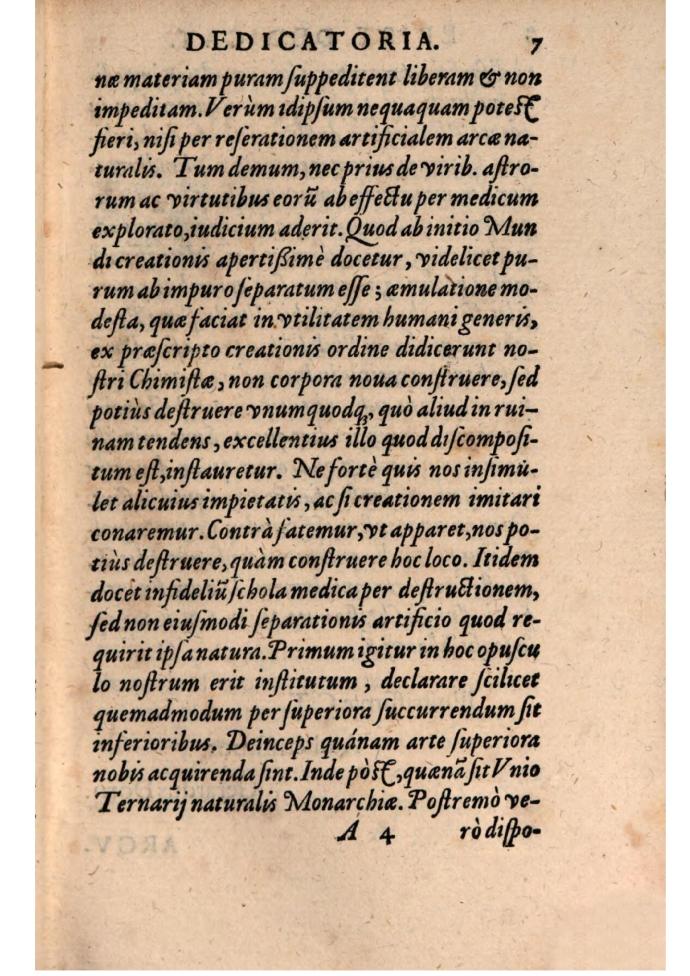 DEDICATORIA. 7
næ materiam puram ſuppeditent liberam & non
impeditam. Verùm idipſum nequaquam poteſt
fieri, niſi per reſerationem artificialem arcæ na-
turalis. Tum demum, nec prius de virib. aſtro-
rum ac virtutibus eorũ ab effectu per medicum
explorato, iudicium aderit. Quod ab initio Mun
di creationis apertißimè docetur, videlicet pu-
rum ab impuro ſeparatum eſſe; æmulatione mo-
deſta, quæ faciat in vtilitatem humani generis,
ex præſcripto creationis ordine didicerunt no-
ſtri Chimiſtæ, non corpora noua conſtruere, ſed
potiùs deſtruere vnumquodq;, quò aliud in rui-
nam tendens, excellentius illo quod diſcompoſi-
tum eſt, inſtauretur. Ne fortè quis nos inſimu-
let alicuius impietatis, ac ſi creationem imitari
conaremur. Contrà fatemur, vt apparet, nos po-
tiùs deſtruere, quàm conſtruere hoc loco. Itidem
docet infideliũ ſchola medica per deſtructionem,
ſed non eiuſmodi ſeparationis artificio quod re-
quirit ipſa natura. Primum igitur in hoc opuſcu
lo noſtrum erit inſtitutum, declarare ſcilicet
quemadmodum per ſuperiora ſuccurrendum ſit
inferioribus. Deinceps quánam arte ſuperiora
nobis acquirenda ſint. Inde pòſt, quænã ſit Vnio
Ternarij naturalis Monarchiæ. Poſtremò ve-
A 4 rò diſpo-